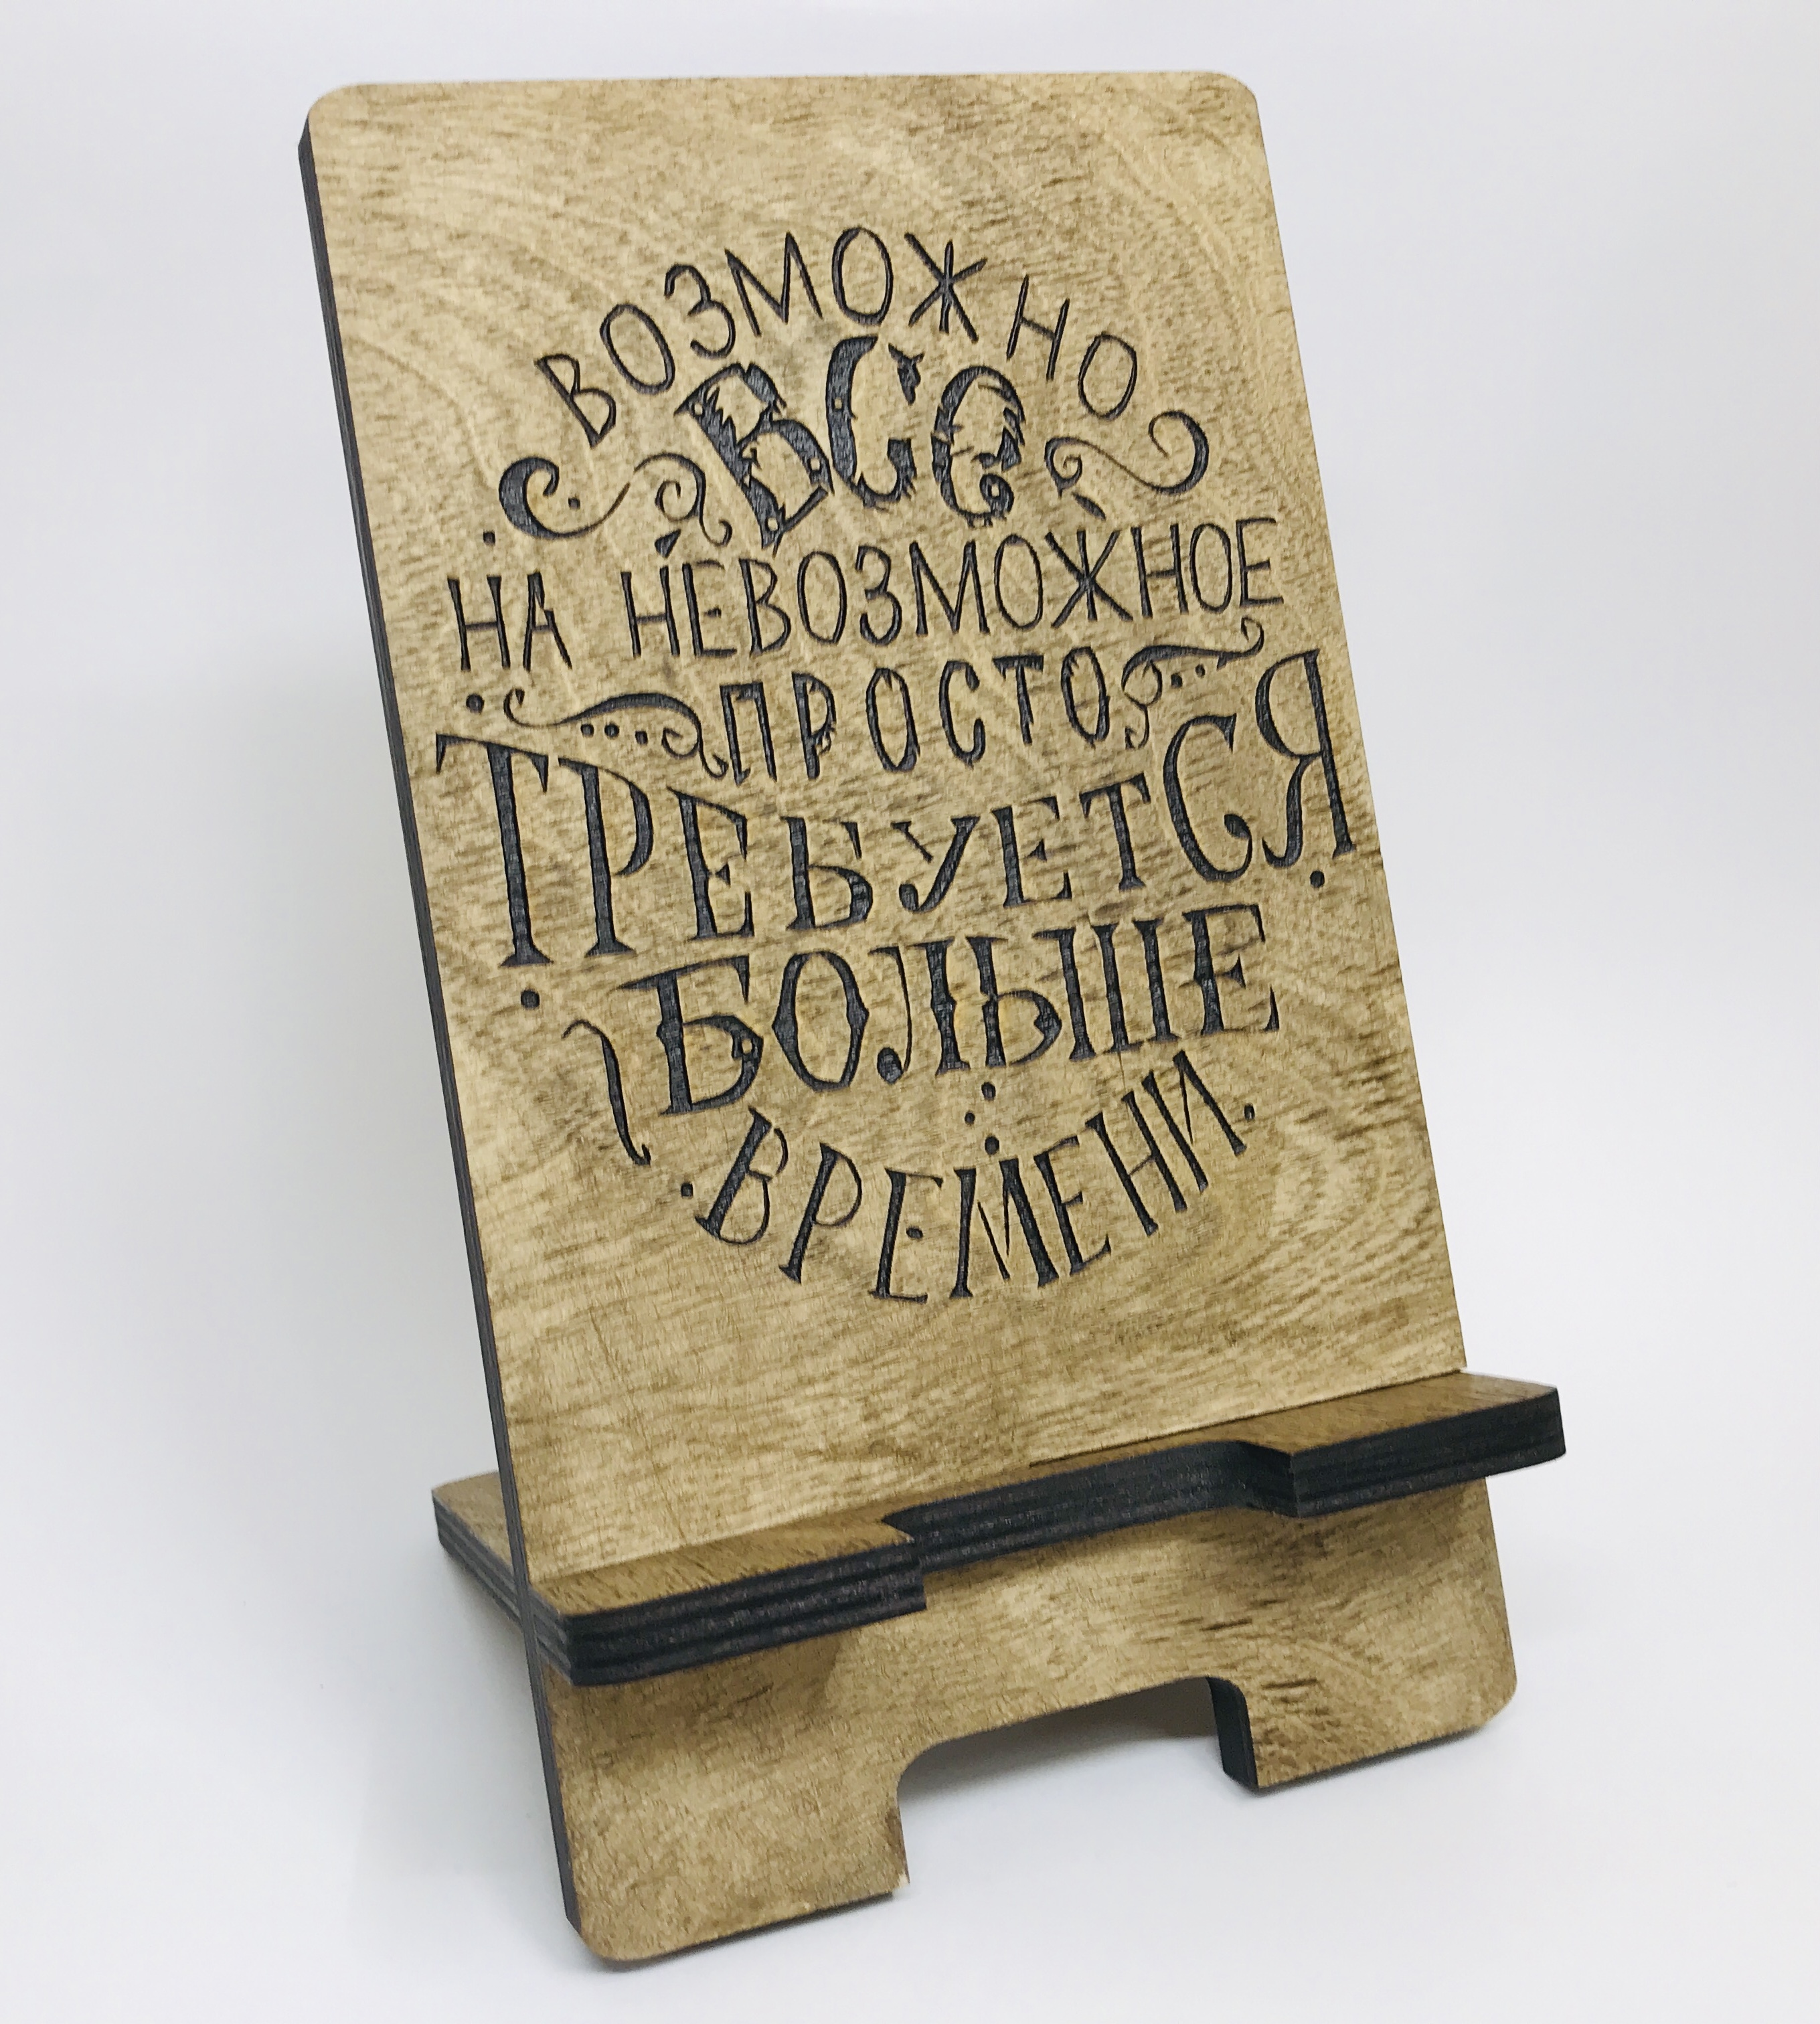 ВОЗМОЖНО
ВСЕ
НА НЕВОЗМОЖНОЕ
ПРОСТО
ТРЕБУЕТСЯ
БОЛЬШЕ
ВРЕМЕНИ